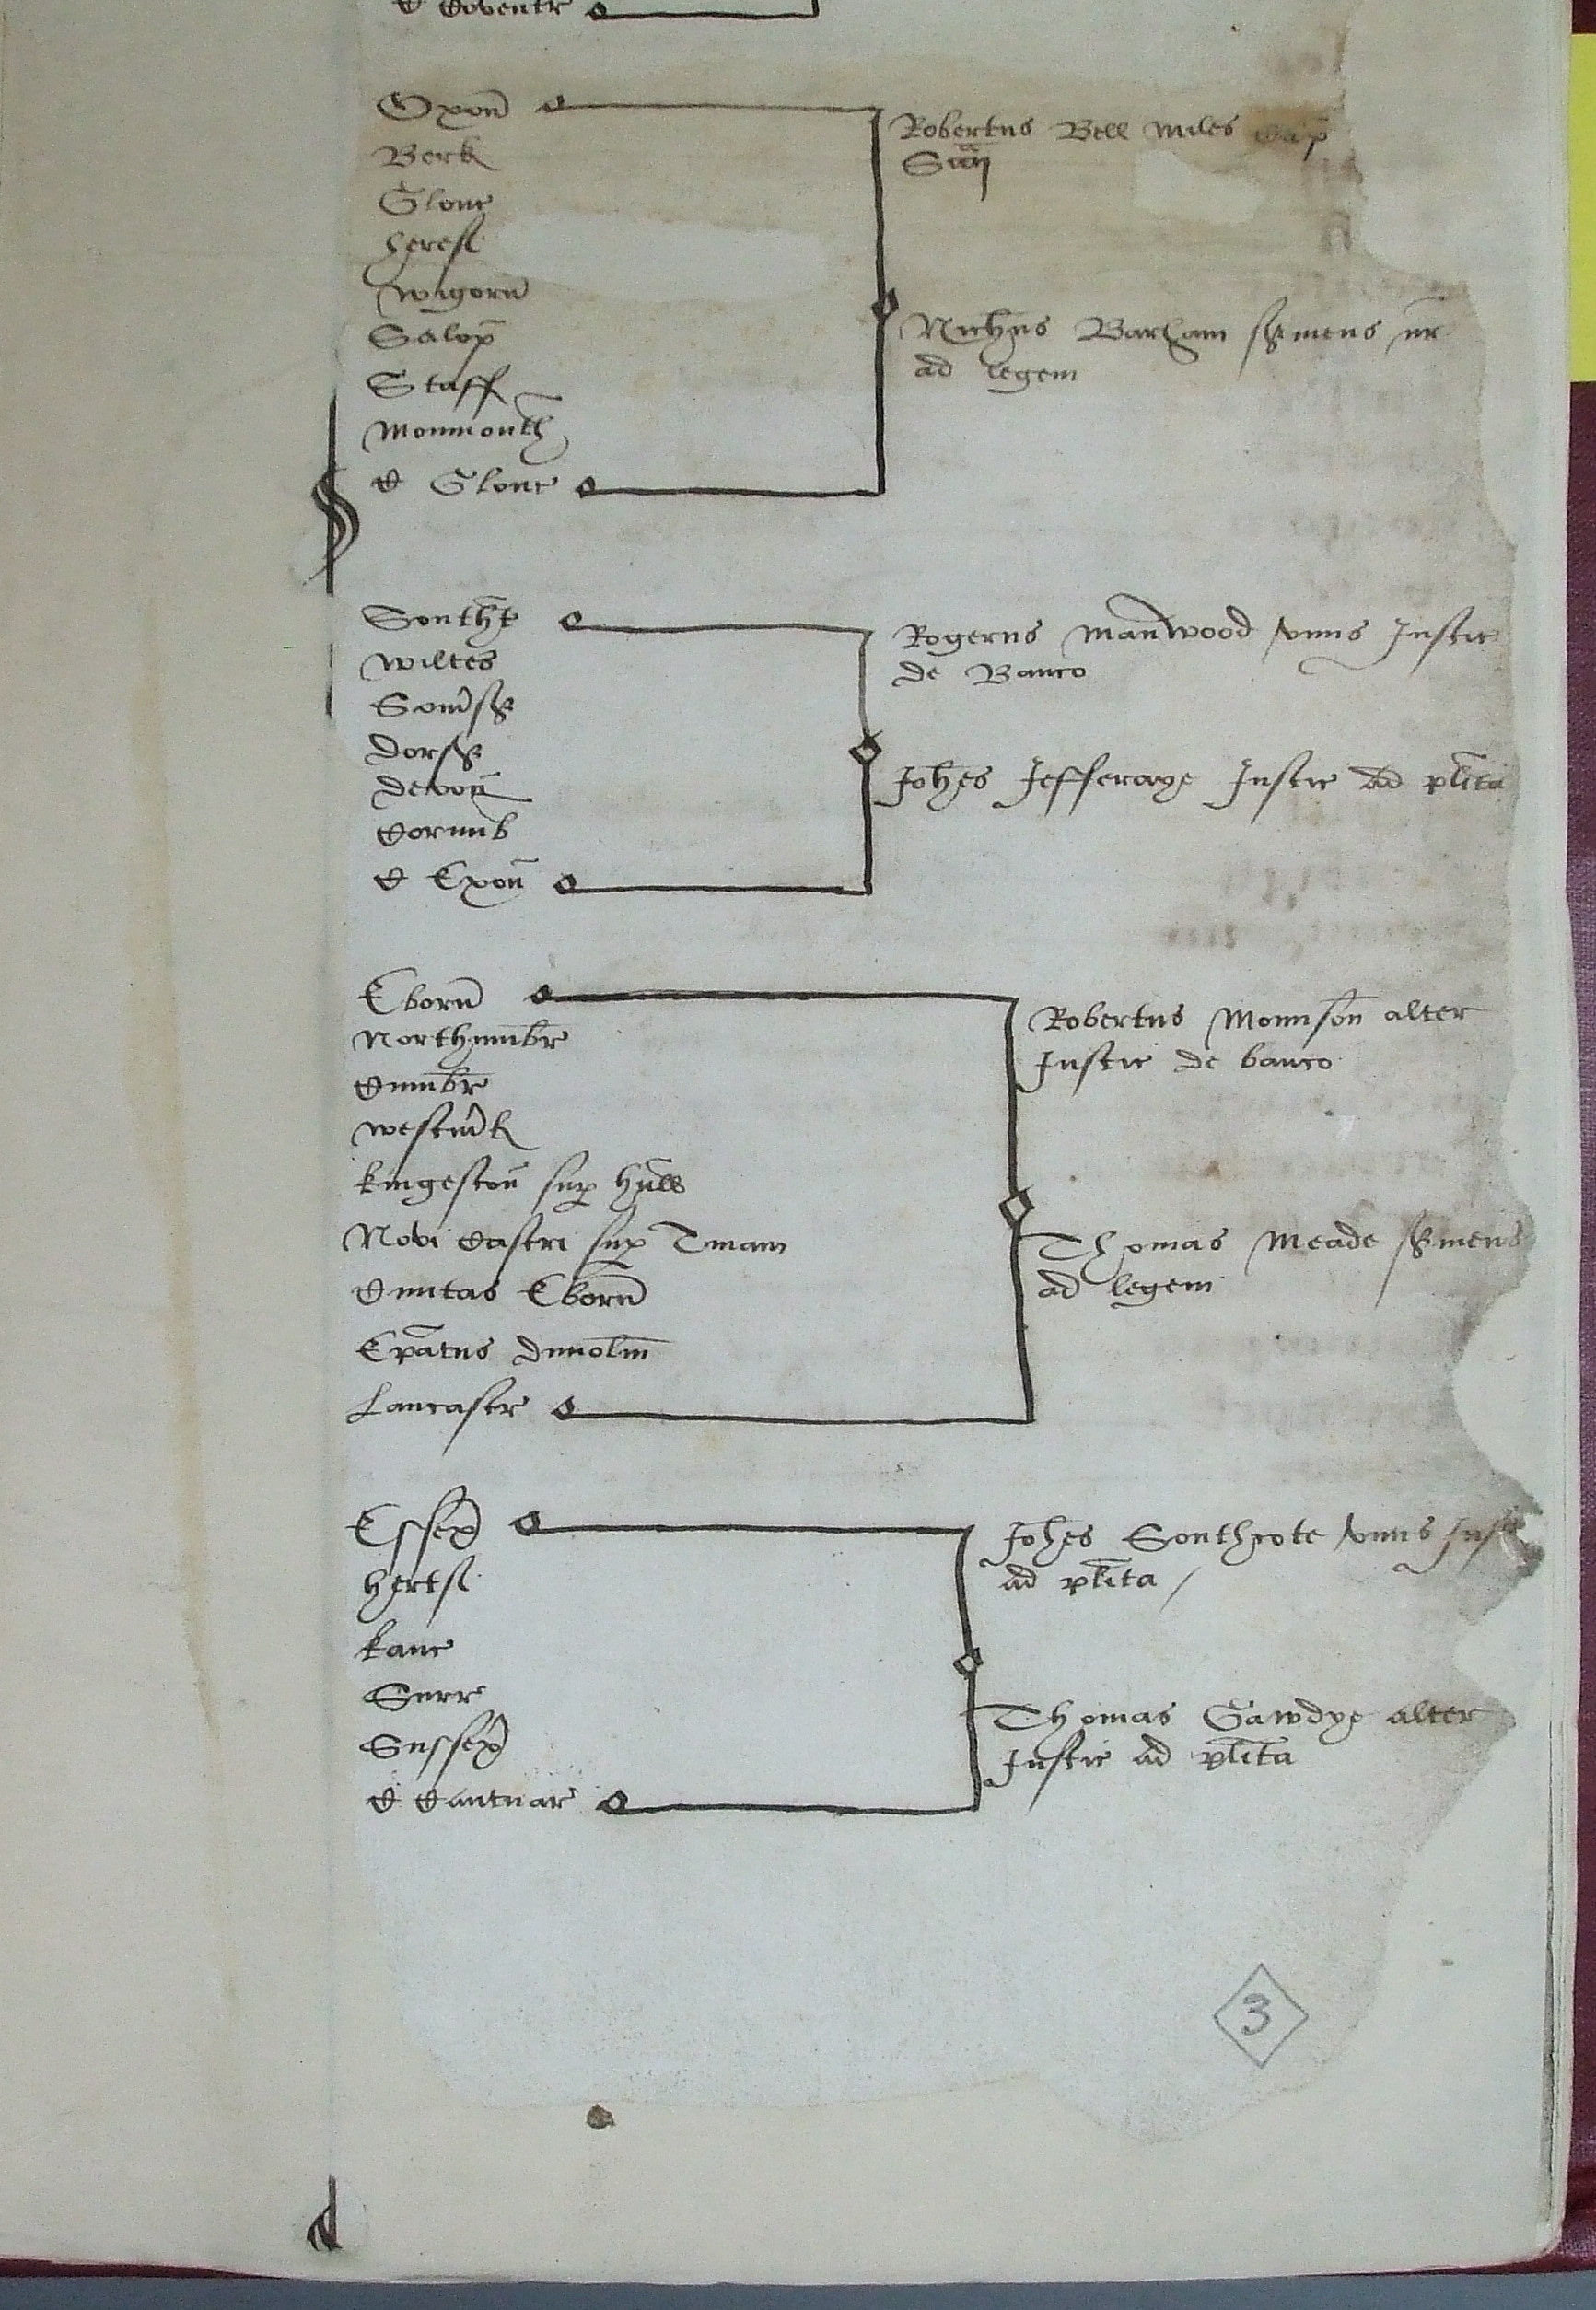 C Coventr
Oxon
Berk
Glouc
Heref
Wigorn
Salop
Staff
Monmouth
C Glouc
Robertus Bell miles Cap
Nichus Barham s͛viens nr
ad legem
Southt
Wiltes
Som͛s͛
Dors͛
Devon
Cornub
C Exon
Rogerus Manwood unus Justic
de Banco
Johes Jefferaye Justic ad plita
Eborn
Northumbr
Cumbr
Westm͛l
Kingeston sup Hull
Novi Castri sup Tinam
Civitas Eborn
Epatus Dunolm
Lancastr
Robertus Mounson alter
Justic de banco
Thomas Meade s͛viens
ad legem
Essex
Hertf
Kanc
Surr
Sussex
C Cantuar
Johes Southcote unus Just
ad plita
Thomas Gawdye alter
Justic ad plita
3